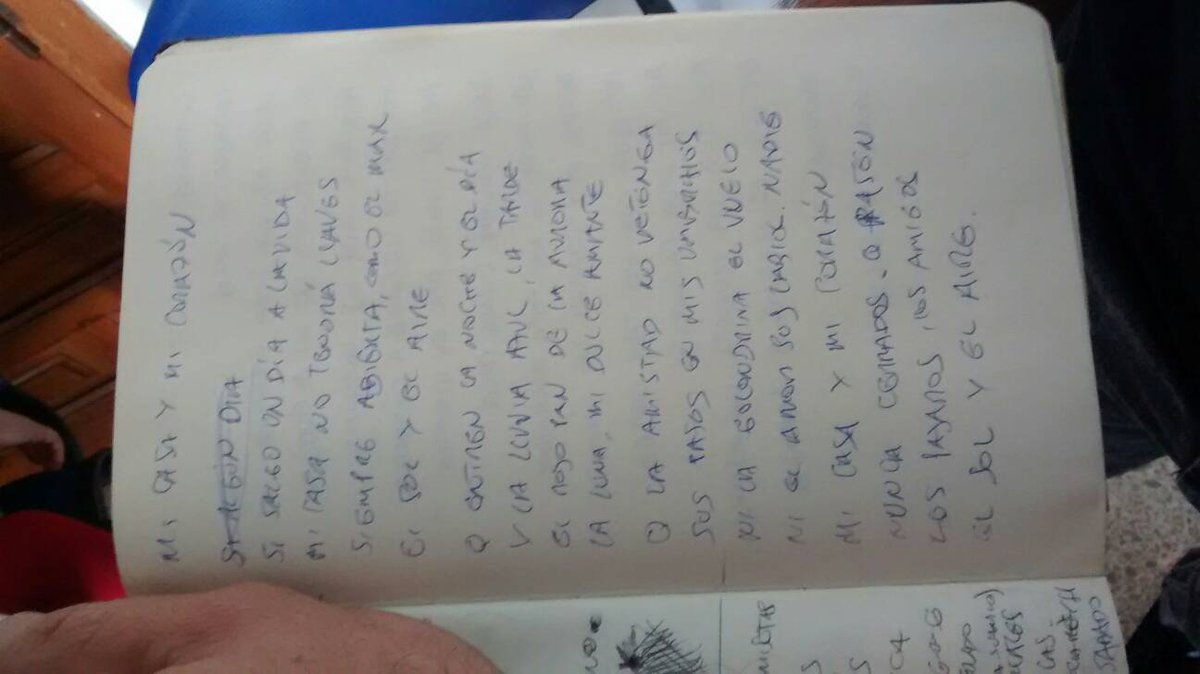 MI CASA Y MI CORAZÓN
SI ALGÚN DIA
SI SALGO UN DÍA A LA VIDA
MI CASA NO TENDRÁ LLAVES
SIEMPRE ABIERTA, COMO EL MAR
EL SOL Y EL AIRE
Q ENTREN LA NOCHE Y EL DÍA
Y LA LLUVIA AZUL, LA TARDE
EL ROJO PAN DE LA AURORA
LA LUNA, MI DULCE AMANTE
Q LA AMISTAD NO DETENGA
SUS PASOS EN MIS UMBRALES
NI LA GOLONDRINA EL VUELO
NI EL AMOR SUS LABIOS. NADIE
MI CASA Y MI CORAZÓN
NUNCA CERRADOS. Q PASEN
LOS PAJAROS, LOS AMIGOS
EL SOL Y EL AIRE.